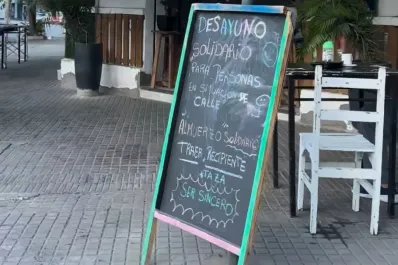 DESAYUNO
SOLIDARIO
PARA PERSONAS
EN SITUACIÓN DE
CALLE
ALMUERZO SOLIDARIO
TRAER RECIPIENTE
TAZA
SER SINCERO